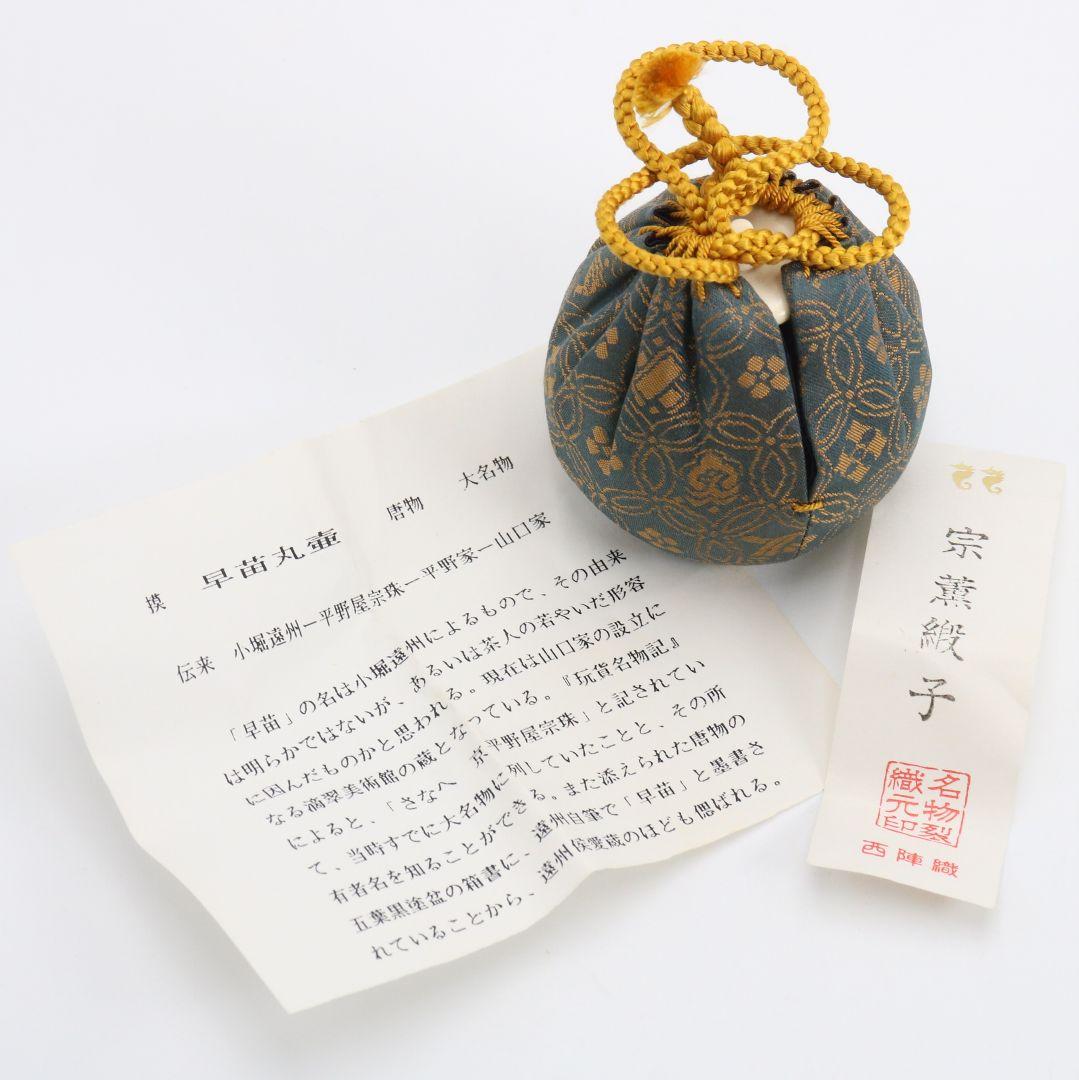 唐物　大名物
摸　早苗丸壷
伝来　小堀遠州ー平野屋宗珠ー平野家ー山口家
「早苗」の名は小堀遠州によるもので、その由来
は明らかではないが、あるいは茶人の若やいだ形容
に因んだものかと思われる。現在は山口家の設立に
なる滴翠美術館の蔵となっている。『玩貨名物記』
によると、「さなへ　京平野屋宗珠」と記されてい
て、当時すでに大名物に列していたことと、その所
有者名を知ることができる。また添えられた唐物の
五葉黒塗盆の箱書に、遠州自筆で「早苗」と墨書さ
れていることから、遠州侯愛蔵のほども偲ばれる。
宗薫緞子
名物裂
織元印
西陣織